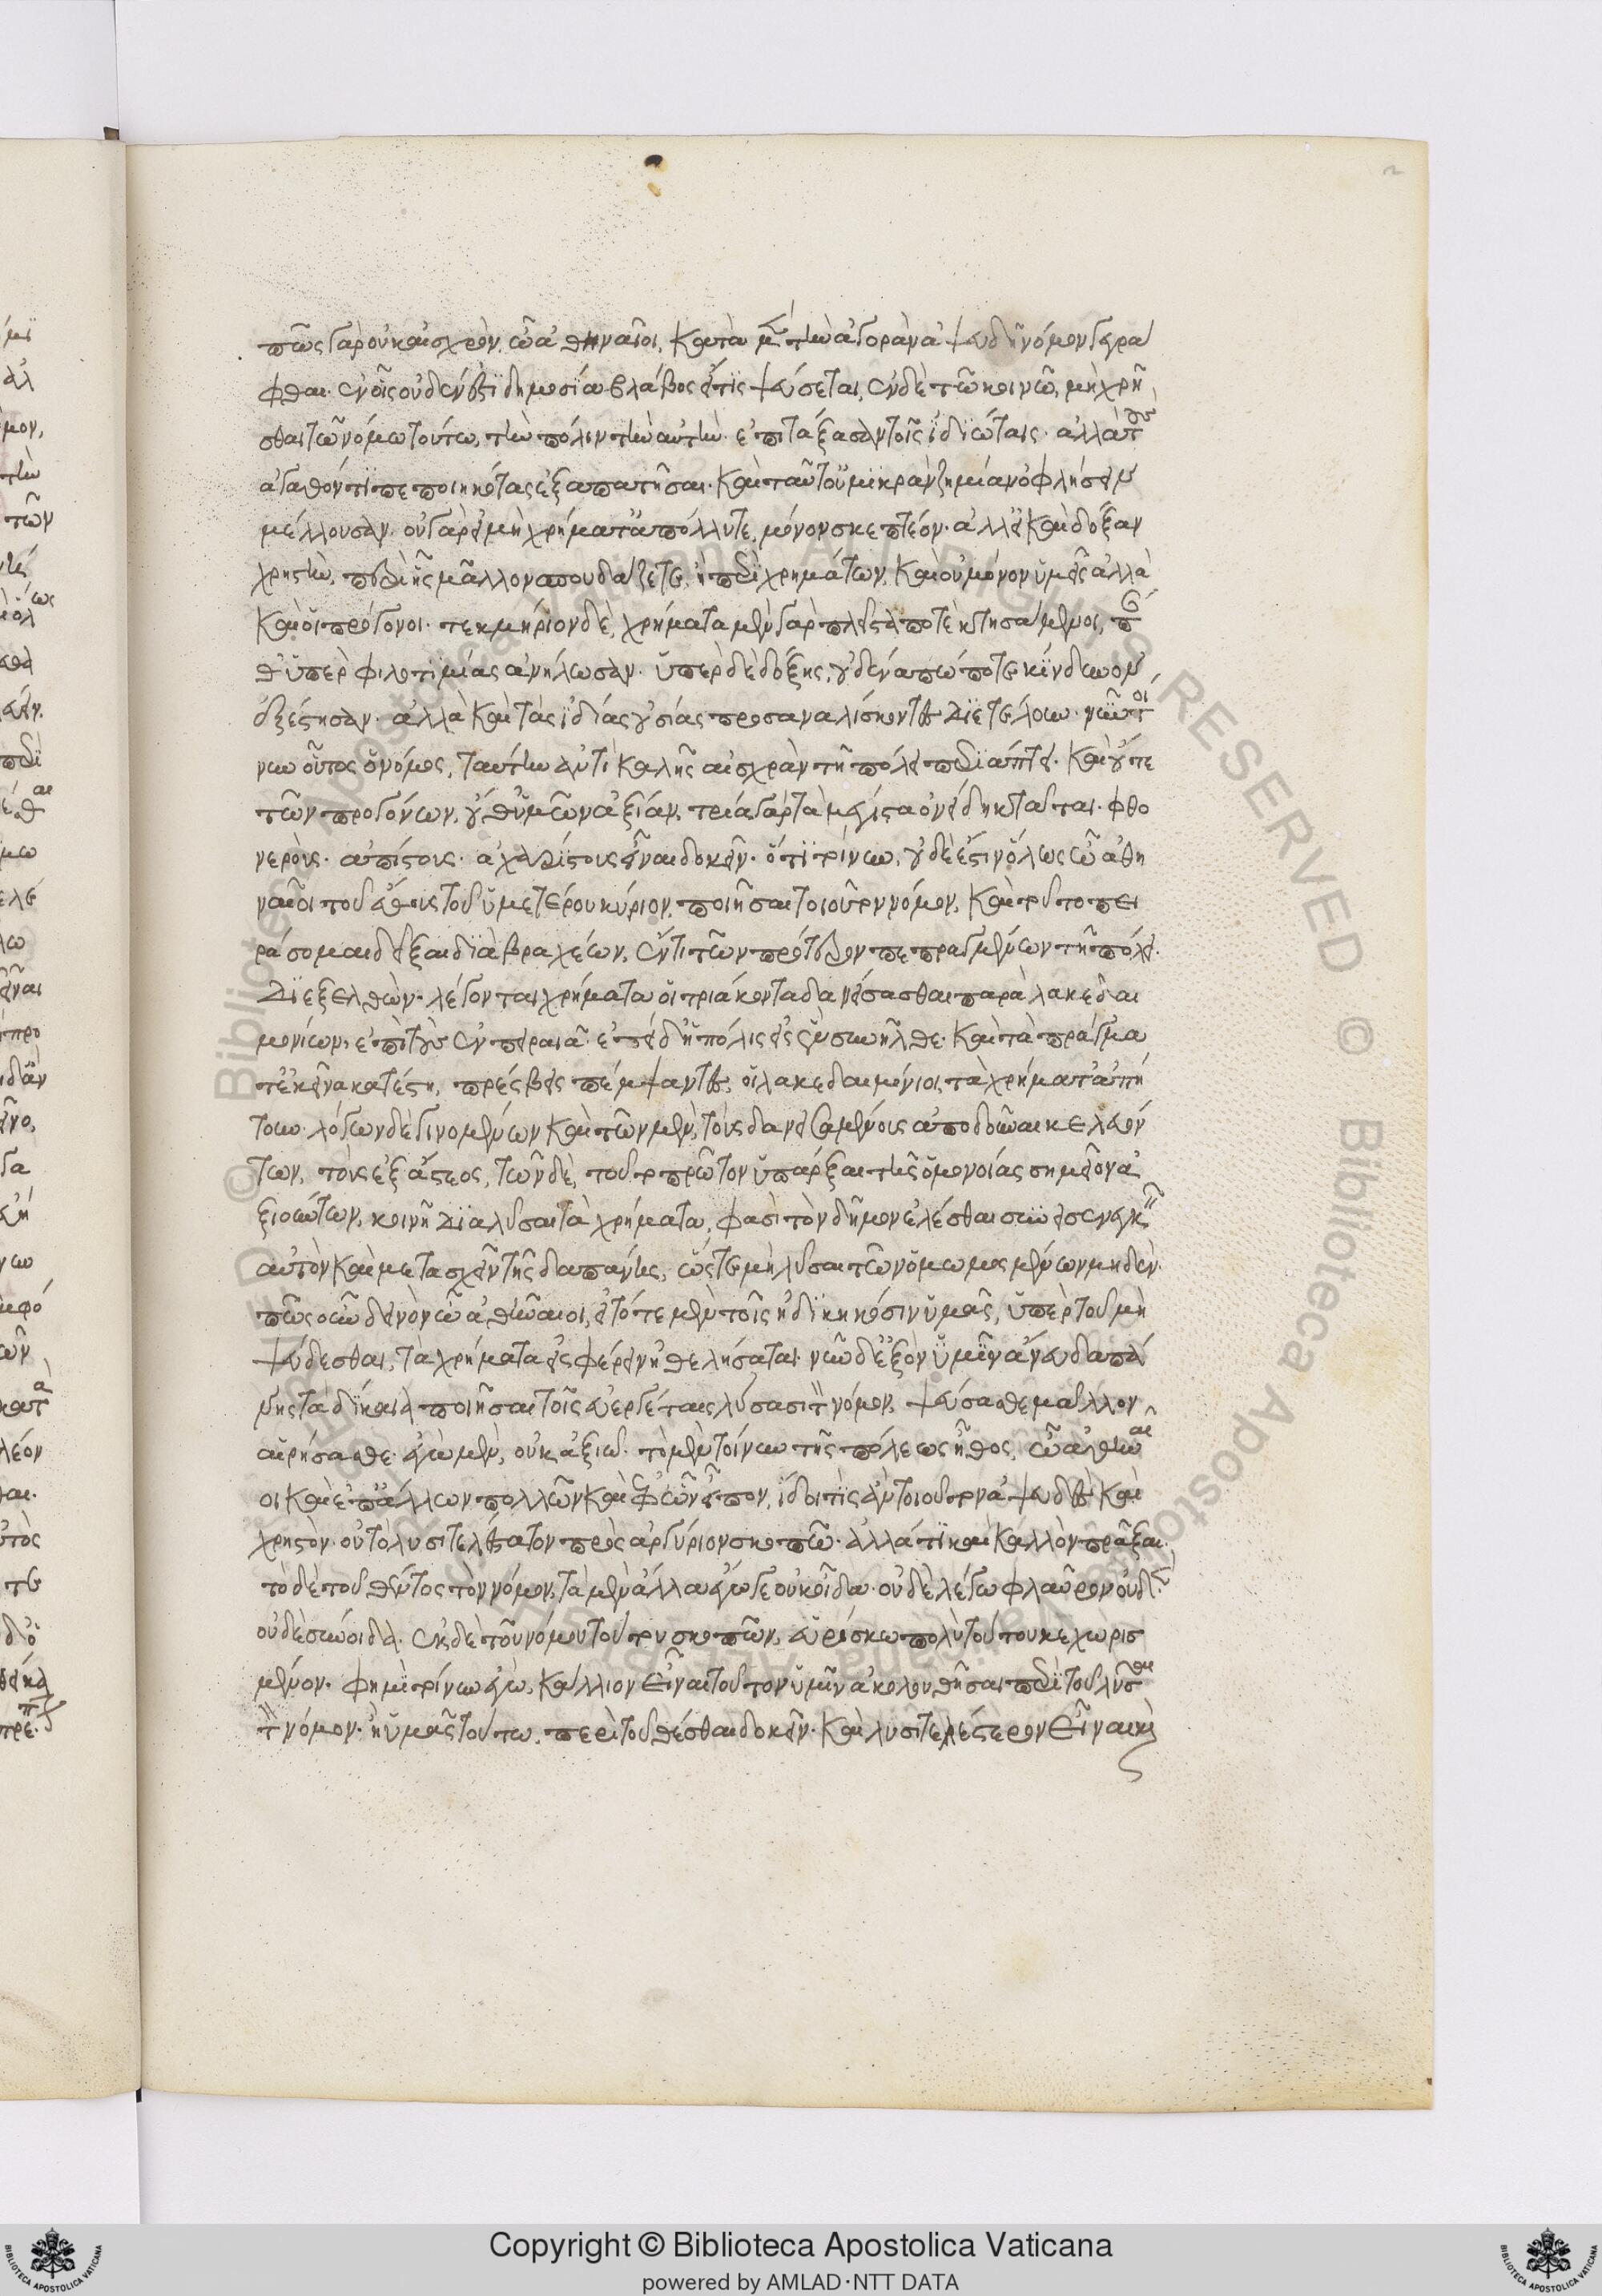 πῶς γὰρ οὐκ αἰσχρὸν, ὦ ἀθηναῖοι, κατὰ μὲν τὴν ἀγορὰν ἀψευδεῖν νόμον γεγρά
φθαι. ἐν οἷς οὐδέν ἐστι δημοσίᾳ βλάβος εἴ τις ψεύσεται, ἐν δὲ τῶ κοινῶ, μὴ χρῆ
σθαι τῶ νόμω τούτω, τὴν πόλιν τὴν αὐτὴν ἐπιτάξασαν τοῖς ἰδιώταις. ἀλλὰ τοὺς
ἀγαθόν τι πεποιηκότας ἐξαπατῆσαι. καὶ ταῦτ' οὐ μικρὰν ζημίαν ὀφλήσειν
μέλλουσαν. οὐ γὰρ εἰ μὴ χρήματα ἀπόλλυτε, μόνον σκεπτέον. ἀλλ' εἰ καὶ δόξαν
χρηστὴν, περὶ ἧς μᾶλλον σπουδάζετε, ἢ περὶ χρημάτων, καὶ οὐ μόνον ὑμεῖς ἀλλὰ
καὶ οἱ πρόγονοι. τεκμήριον δὲ, χρήματα μὲν γὰρ πλεῖστά ποτε κτησάμενοι, πάν
θ' ὑπὲρ φιλοτιμίας ἀνήλωσαν. ὑπὲρ δὲ δόξης, οὐδένα πώποτε κίνδυνον
ἐξέστησαν. ἀλλὰ καὶ τὰς ἰδίας οὐσίας προσαναλίσκοντες διετέλουν. νῦν τοί
νυν οὗτος ὁ νόμος, ταύτην ἀντὶ καλῆς αἰσχρὰν τῆ πόλει περιάπτει. καὶ οὔτε
τῶν προγόνων, οὔθ' ὑμῶν ἀξίαν. τρία γὰρ τὰ μέγιστα ὀνείδη κτᾶται. φθο
νεροὺς. ἀπίστους. ἀχαρίστους εἶναι δοκεῖν. ὅτι τοίνυν, οὐδέ ἐστιν ὅλως ὦ ἀθη
ναῖοι τοῦ ἤθους τοῦ ὑμετέρου κύριον, ποιῆσαι τοιοῦτον νόμον, καὶ τοῦτο πει
ράσομαι δεῖξαι διὰ βραχέων, ἕν τι τῶν πρότερον πεπραγμένων τῆ πόλει.
διεξελθών. λέγονται χρήματα οἱ τριάκοντα δανείσασθαι παρὰ λακεδαι
μονίων, ἐπὶ τοὺς ἐν πειραιᾶ. ἐπειδὴ ἡ πόλις εἰς ἓν συνῆλθε. καὶ τὰ πράγμα
τ' ἐκεῖνα κατέστη, πρέσβεις πέμψαντες, οἱ λακεδαιμόνιοι, τὰ χρήματ' ἀπή
τουν. λόγων δὲ γινομένων καὶ τῶν μὲν, τοὺς δανεισαμένους ἀποδοῦναι κελευόν
των, τοὺς ἐξ ἄστεος, τῶν δὲ, τοῦτο πρῶτον ὑπάρξαι τῆς ὁμονοίας σημεῖον ἀ
ξιούντων, κοινῆ διαλῦσαι τὰ χρήματα, φασὶ τὸν δῆμον ἑλέσθαι συνεισενεγκεῖν
αὐτὸν καὶ μετασχεῖν τῆς δαπάνης, ὥστε μὴ λῦσαι τῶν ὡμολογημένων μηδέν.
πῶς οὖν δεινὸν ὦ ἀθηναῖοι, εἰ τότε μὲν τοῖς ἠδικηκόσιν ὑμᾶς, ὑπὲρ τοῦ μὴ
ψεύδεσθαι, τὰ χρήματα εἰσφέρειν ἠθελήσατε. νῦν δ' ἐξὸν ὑμῖν ἄνευ δαπά
νης τὰ δίκαια ποιῆσαι τοῖς εὐεργέταις λύσασι τὸν νόμον, ψεύσασθαι μᾶλλον
αἱρήσεσθε. ἐγὼ μὲν, οὐκ ἀξιῶ. τὸ μὲν τοίνυν τῆς πόλεως ἦθος, ὦ ἀθηναῖ
οι καὶ ἐπ' ἄλλων πολλῶν καὶ ἐφ' ὧν εἶπον, ἴδοι τις ἂν τοιοῦτον ἀψευδὲς καὶ
χρηστὸν. οὐ τὸ λυσιτελέστατον πρὸς ἀργύριον σκοπῶν. ἀλλὰ τί καὶ καλὸν πρᾶξαι.
τὸ δὲ τοῦ θέντος τὸν νόμον, τὰ μὲν ἄλλα ἔγωγε οὐκ οἶδα. οὐδὲ λέγω φλαῦρον οὐδὲν
οὐδὲ σύνοιδα. ἐκ δὲ τοῦ νόμου τοῦτον σκοπῶν, εὑρίσκω πολὺ τούτου κεχωρισ
μένον. φημὶ τοίνυν ἐγὼ, κάλλιον εἶναι τοῦτον ὑμῖν ἀκολουθῆσαι περὶ τοῦ λῦσαι
τὸν νόμον. ἢ ὑμᾶς τούτω, περὶ τοῦ θέσθαι δοκεῖν. καὶ λυσιτελέστερον εἶναι καὶ
Copyright © Biblioteca Apostolica Vaticana
powered by AMLAD·NTT DATA